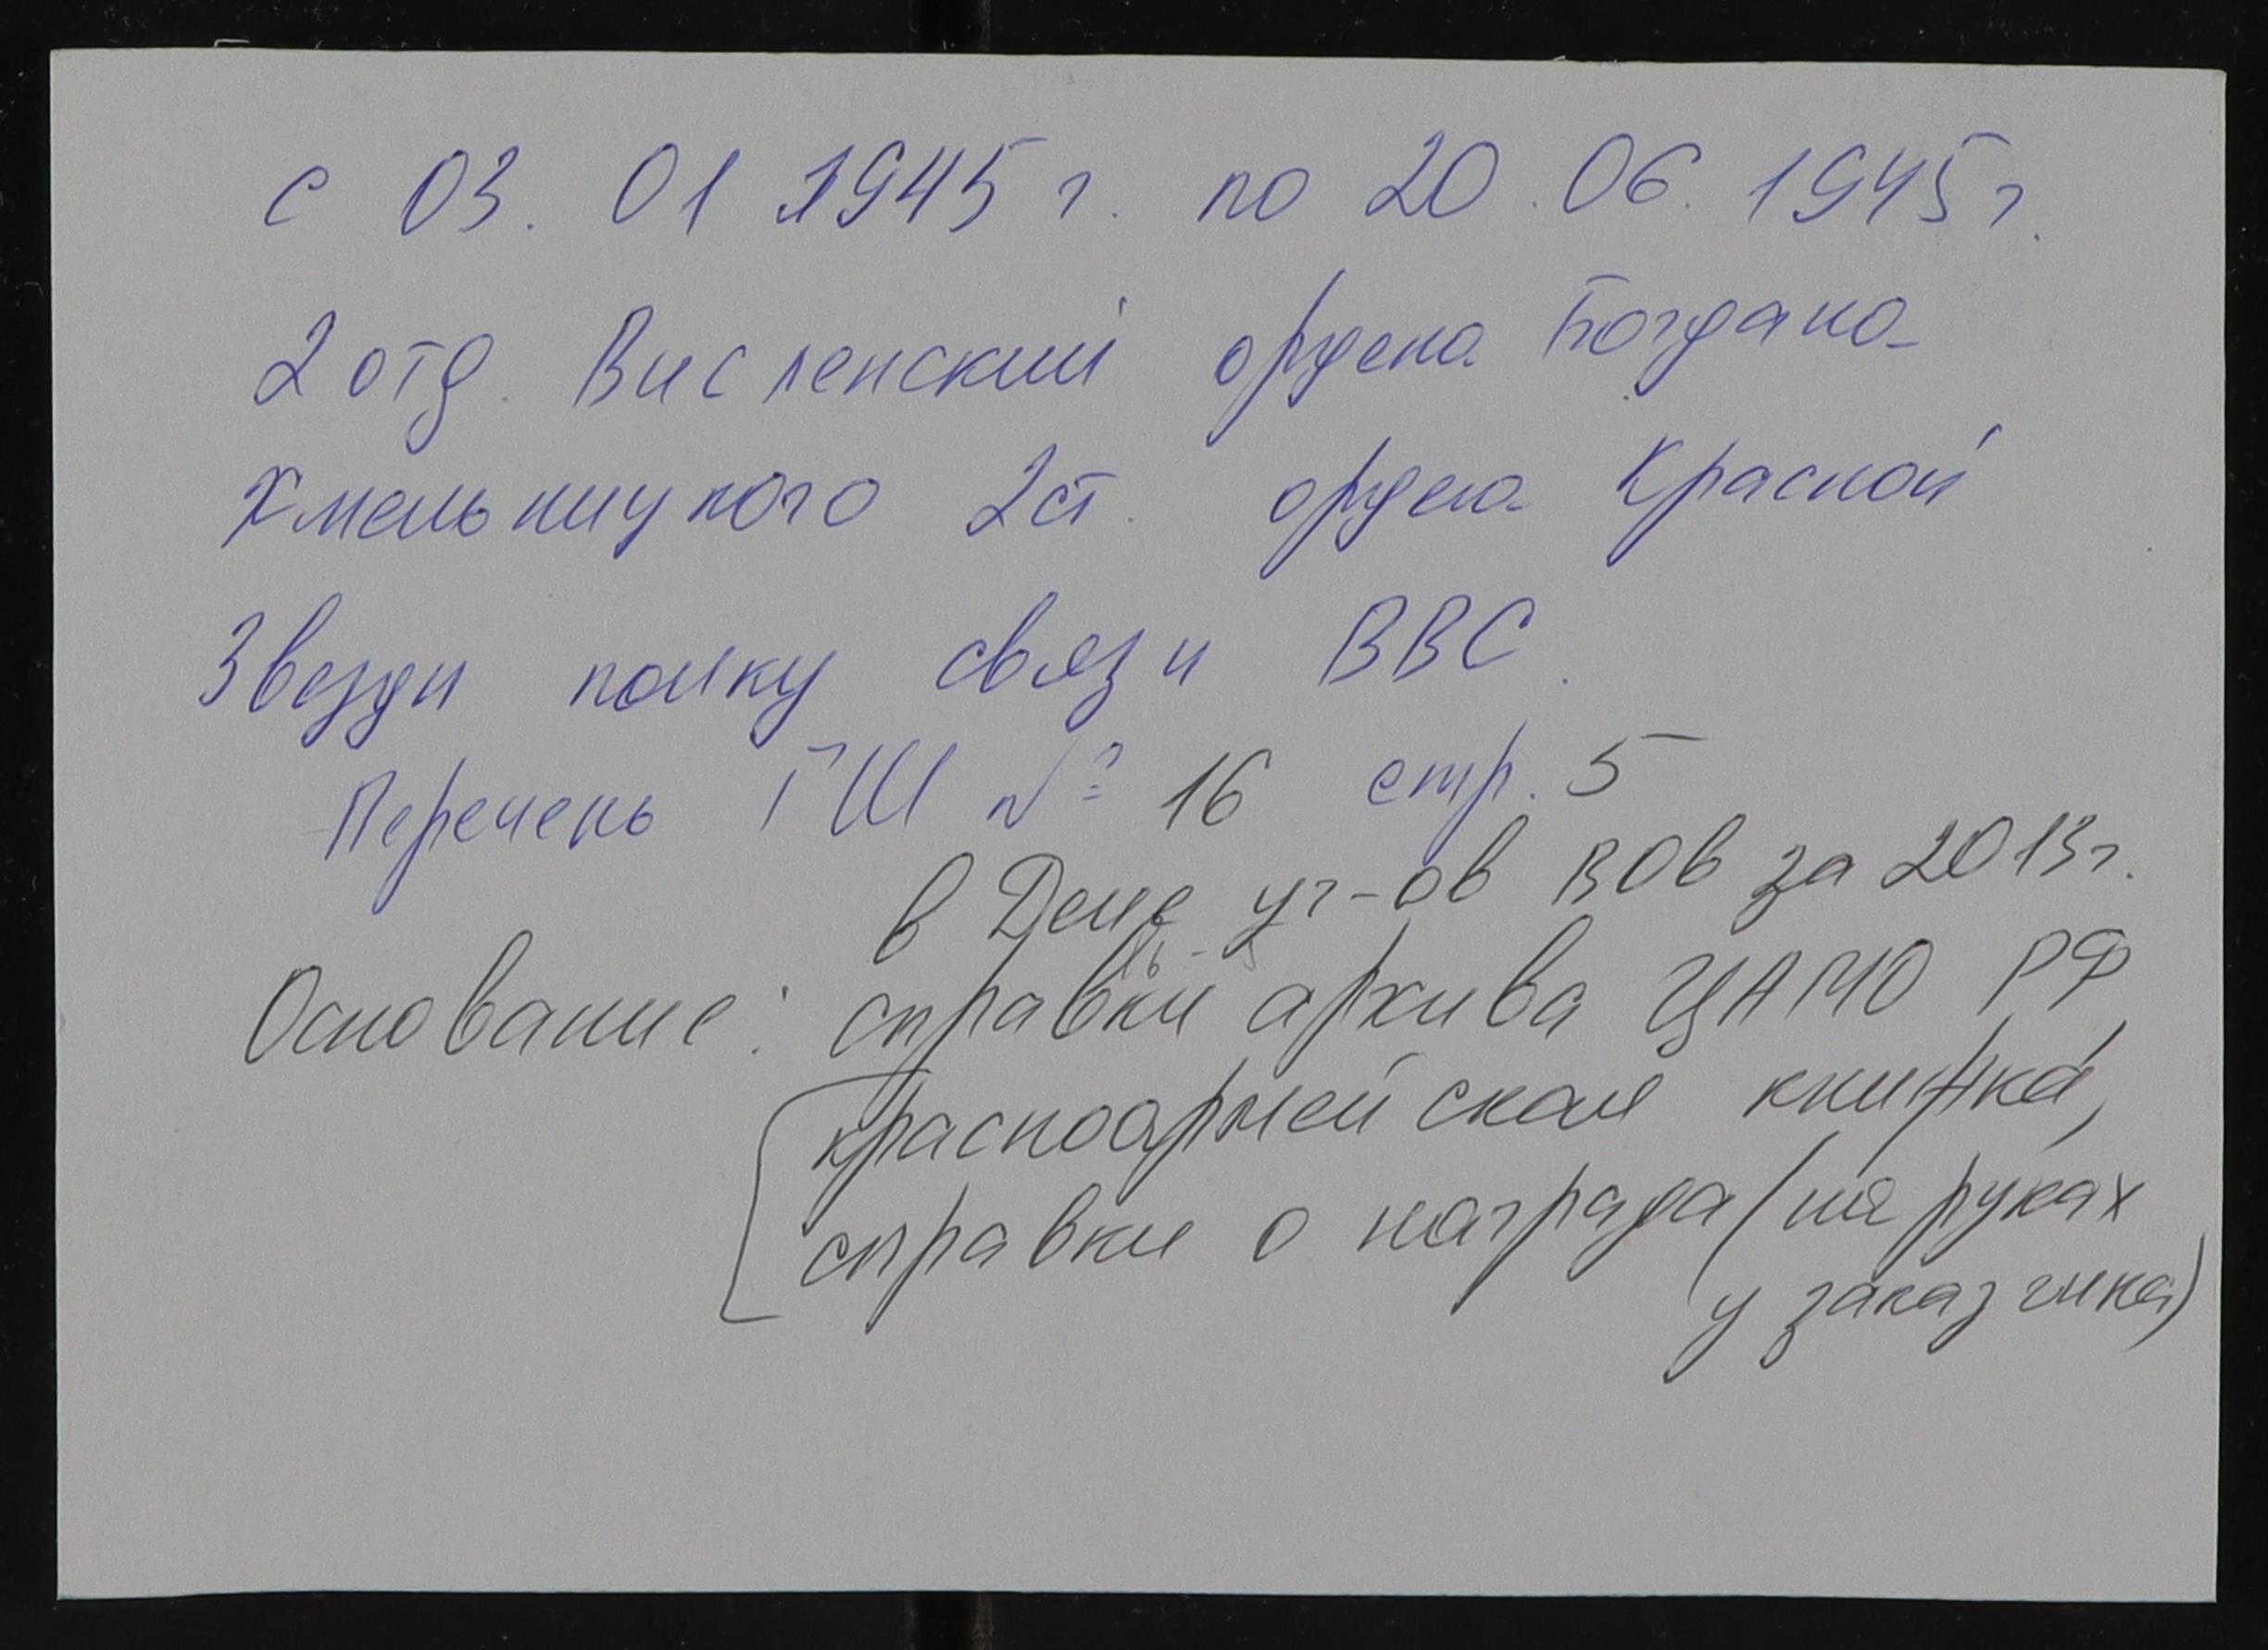 с 03. 01 1945 г. по 20. 06. 1945 г.
2 отд. Висленский ордена Богдана
Хмельницкого 2 ст. ордена Красной
Звезды полку связи ВВС.
Перечень ГШ № 16 стр. 5
в Деле уч-ов ВОВ за 2013 г.
Основание: справки архива ЦАМО РФ,
красноармейская книжка,
справки о награда (на руках
у заказчика)